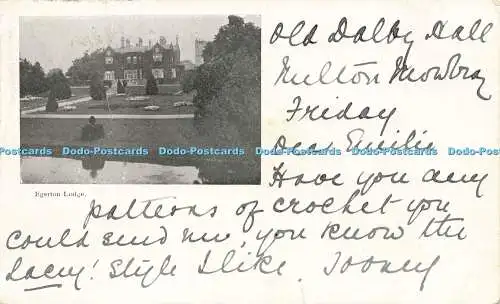 Old Dalby Hall
Melton Mowbray
Friday
Dear Emilie
Have you any
patterns of crochet you
could send me, you know the
Lacey! Style I like.
Egerton Lodge.
www.Dodo-Postcards Dodo-Postcards Dodo-Postcards Dodo-Postcards Dodo-Postcards Dodo-Postcards